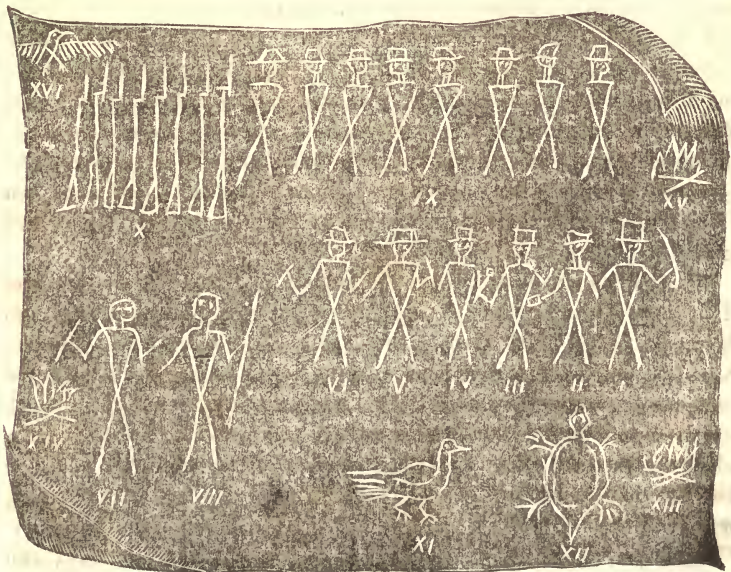 XVI
IX
XV
X
VI V IV III II I
XIV
VII VIII
XIII
XI
XII